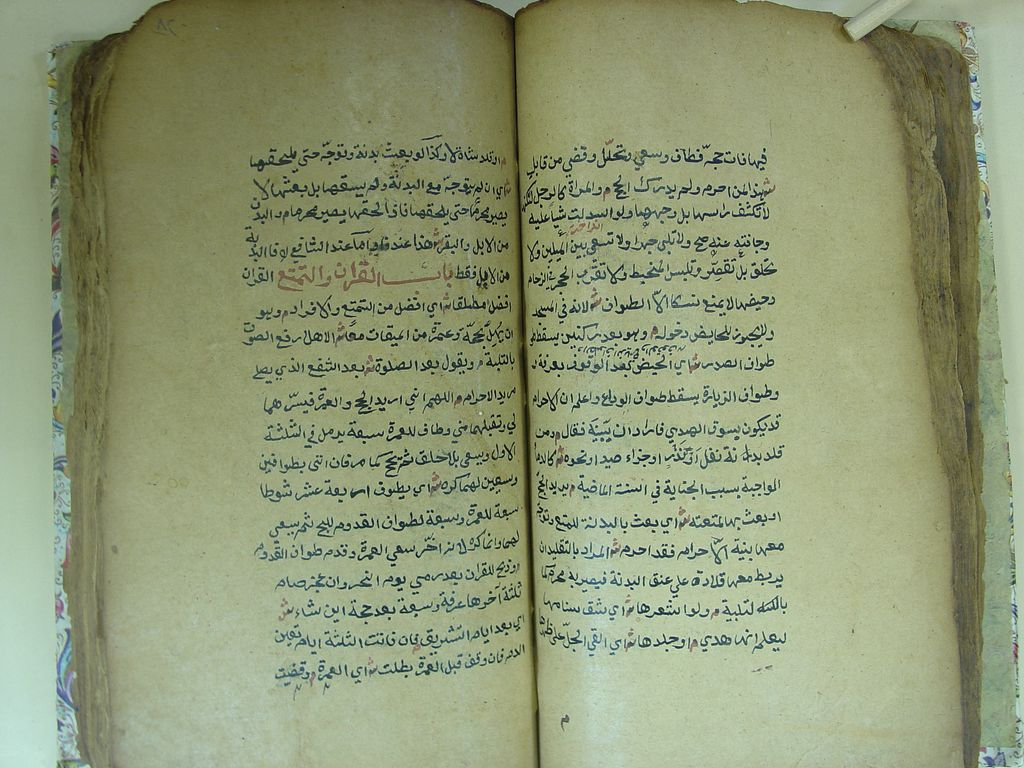 فيها فات حجه فطاف وسعي وتحلل وقضي من قابل
هذا لمن احرم ولم يدرك الحج م والمراة كالرجل لكنها
لا تكشف راسها بل وجهها ولو اسدلت شيا عليه
وجافته عنه صح ولا تلبي جهرا ولا تسعي بين الميلين ولا
تحلق بل تقصر وتلبس المخيط ولا تقرب الحجر في الزحام
وحيضها لا يمنع نسكا الا الطواف ش لانه في المسجد
ولا يجوز للحايض دخوله م وهو بعد ركنين يسقط
طواف الصدر ش اي الحيض بعد الوقوف بعرفة
وطواف الزيارة يسقط طواف الوداع واعلم ان الاحرام
قد يكون بسوق الهدي فاراد ان يبينه فقال م ومن
قلد بدنة نفل او نذر او جزاء صيد او نحوه ش كالدماء
الواجبة بسبب الجناية في السنة الماضية م يريد الحج
او بعث بها لمتعته ش اي بعث بالبدنة للتمتع وتوجه
معها بنية الاحرام فقد احرم ش المراد بالتقليد ان
يربط معها قلادة علي عنق البدنة فيصير به محرما كما
بالتلبية م ولو اشعرها ش اي شق سنامها
ليعلم انه هدي م او جللها ش اي القي الجل علي ظهرها
م او قلد شاة لا وكذا لو بعث بدنة وتوجه حتي يلحقها
ش اي ان لم يتوجه مع البدنة ولم يسقها بل بعثها لا
يصير محرما حتي يلحقها فاذا لحقها يصير محرما م والبدن
من الابل والبقر ش هذا عندنا واما عند الشافعي لا فالبدنة
من الابل فقط باب القران والتمتع القران
افضل مطلقا ش اي افضل من التمتع والافراد م وهو
ان يهل بحجة وعمرة من الميقات معا ش الاهلال رفع الصوت
بالتلبية م ويقول بعد الصلوة ش بعد الشفع الذي يصلي
مريد الاحرام م اللهم اني اريد الحج والعمرة فيسرهما
لي وتقبلهما مني وطاف للعمرة سبعة يرمل في الثلثة
الاول ويسعي بلا حلق ثم يحج كما مر فان اتي بطوافين
وسعيين لهما كره ش اي يطوف اربعة عشر شوطا
سبعة للعمرة وسبعة لطواف القدوم للحج ثم يسعي
لهما وانما كره لانه اخر سعي العمرة وقدم طواف القدوم
م وذبح للقران بعد رمي يوم النحر وان عجز صام
ثلثة اخرها عرفة وسبعة بعد حجه اين شاء ش
اي بعد ايام التشريق م فان فاتت الثلثة ايام تعين
الدم فان وقف قبل العمرة بطلت ش اي العمرة م وقضيت